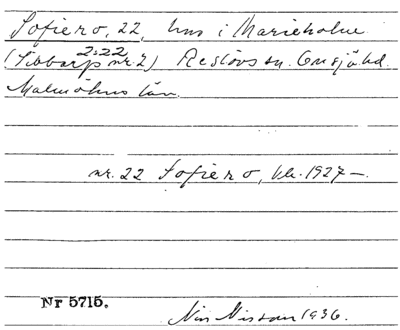 Sofiero, 22, hus i Marieholm
2:22
(Sibbarp nr. 2) Reslövs sn. Onsjö hd.
Malmöhus län.
nr. 22 Sofiero, 1927 —.
Nr 5715.
Nils Nilsson 1936.